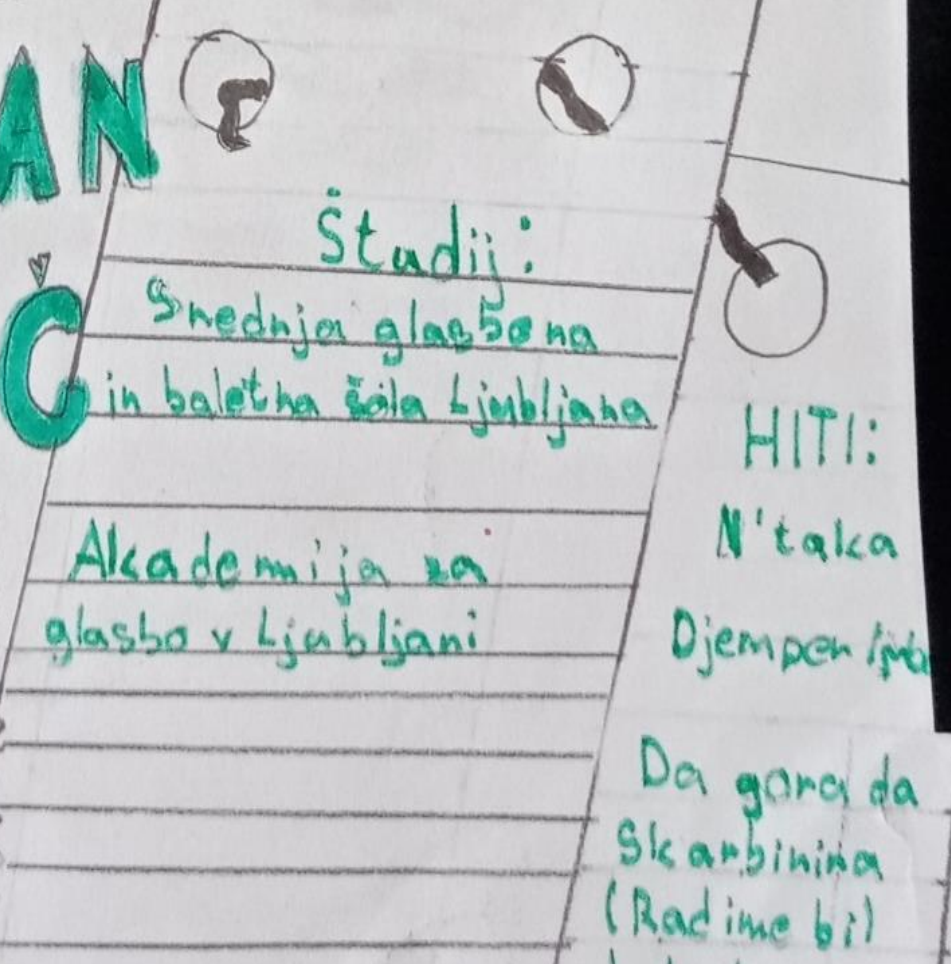 AN
Č
Študij:
Srednja glasbena
in baletna šola Ljubljana
Akademija za
glasbo v Ljubljani
HITI:
N'taka
Da gora da
(Rad ime bil